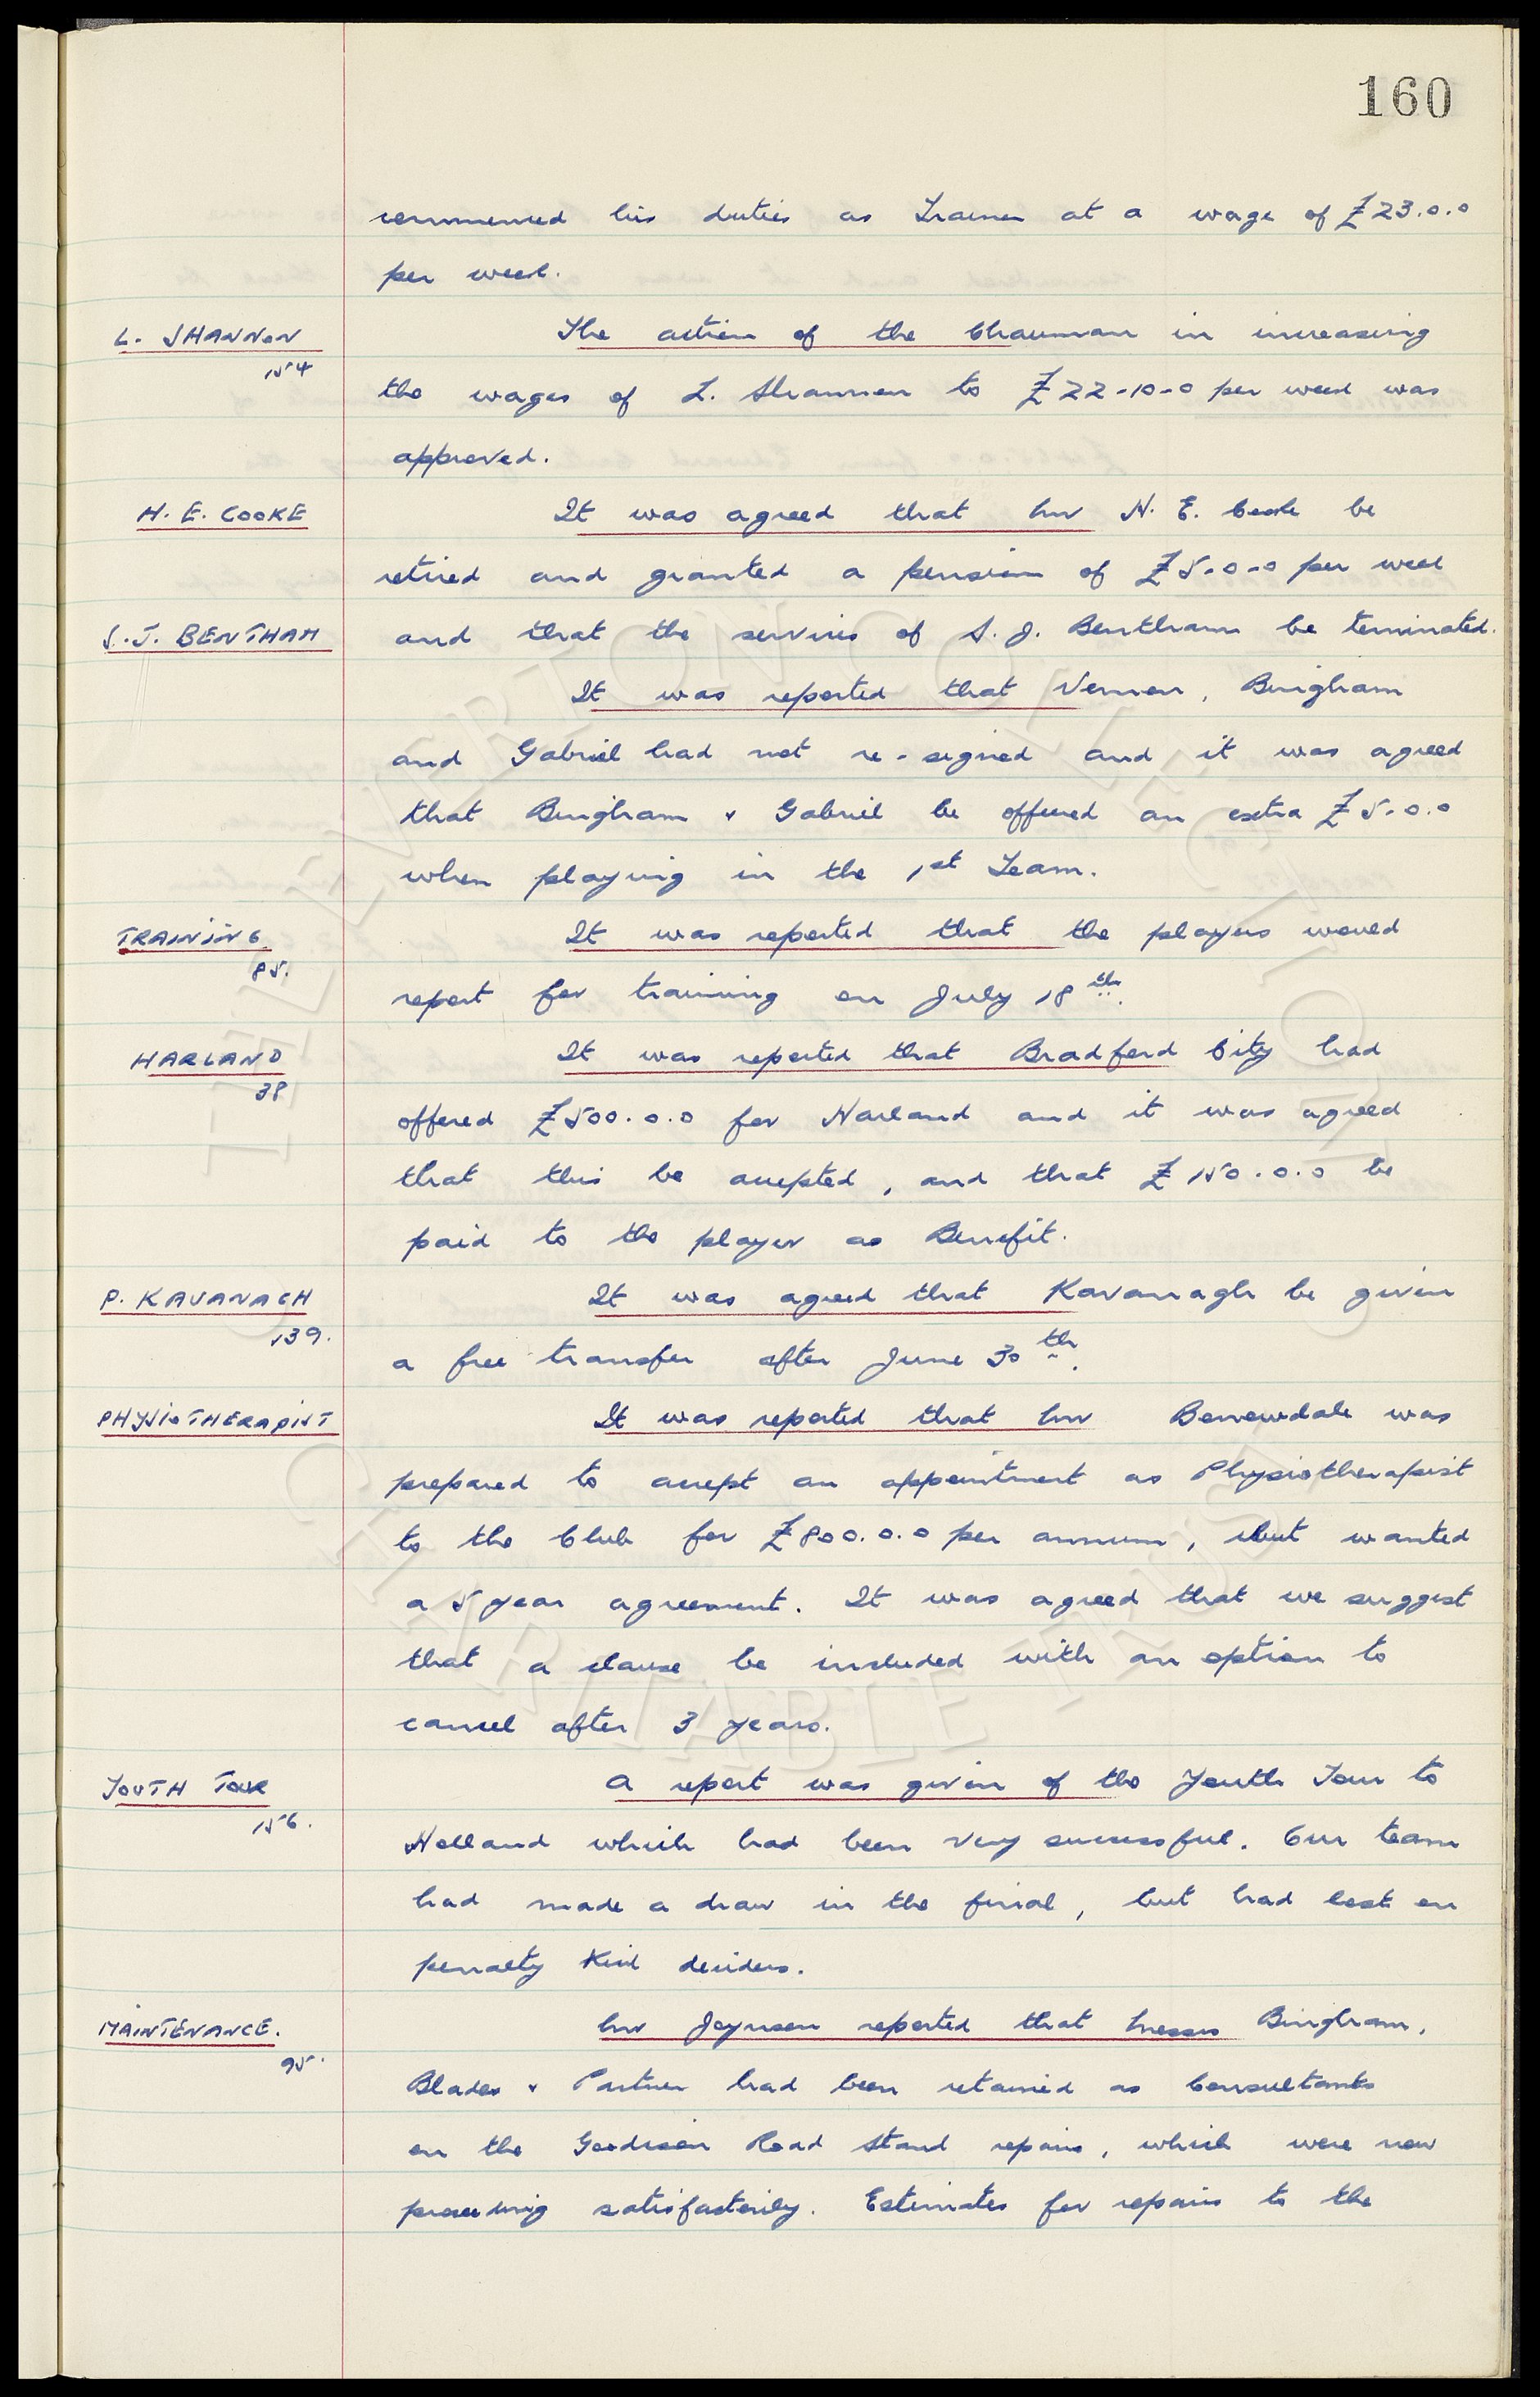 160
commenced his duties as Trainer at a wage of £23.0.0
per week.
L. SHANNON
154
The action of the Chairman in increasing
the wages of L. Shannon to £22-10-0 per week was
approved.
H. E. COOKE
It was agreed that Mr H. E. Cooke be
retired and granted a pension of £5-0-0 per week
S. J. BENTHAM
and that the services of S. J. Bentham be terminated.
It was reported that Vernon, Bingham
and Gabriel had not re-signed and it was agreed
that Bingham & Gabriel be offered an extra £5-0.0
when playing in the 1st Team.
TRAINING
85.
It was reported that the players would
report for training on July 18th.
HARLAND
38
It was reported that Bradford City had
offered £500.0.0 for Harland and it was agreed
that this be accepted, and that £150.0.0 be
paid to the player as Benefit.
P. KAVANAGH
139.
It was agreed that Kavanagh be given
a free transfer after June 30th.
PHYSIOTHERAPIST
It was reported that Mr Borrowdale was
prepared to accept an appointment as Physiotherapist
to the Club for £800.0.0 per annum, but wanted
a 5 year agreement. It was agreed that we suggest
that a clause be included with an option to
cancel after 3 years.
YOUTH TOUR
156.
A report was given of the Youth Tour to
Holland which had been very successful. Our team
had made a draw in the final, but had lost on
penalty kick deciders.
MAINTENANCE.
95.
Mr Joynson reported that Messrs Bingham,
Blades & Partner had been retained as Consultants
on the Goodison Road Stand repairs, which were now
proceeding satisfactorily. Estimates for repairs to the
EVERTON COLLECTION
CHARITABLE TRUST